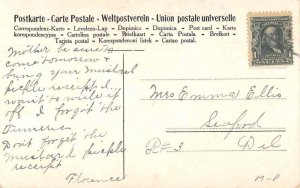 Postkarte - Carte Postale - Weltpostverein - Union postale universelle
Correspondenz-Karte - Levelezo-Lap - Dopisnica - Dopisnice - Post card - Karta
korespondencyjna - Cartolina postale - Briefkaart - Carta Postala - Brefkort -
Tarjeta postal - Korespondenční listek - Cartao postal.
Mother be sure to
come tomorrow &
bring your mustard
pickle receipt I
want to write it
off & I forgot the
Tumeric
Dont forget the
mustard pickle
receipt
Florence
Mrs Emma Ellis
Seaford
R#3 Del
M-P